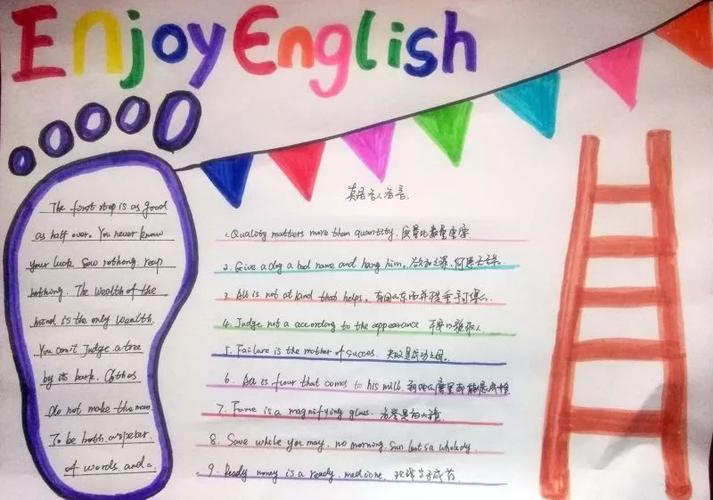 Enjoy English
The first step is as good
as half over. You never know
your luck. Sow nothing, reap
nothing. The wealth of the
mind is the only wealth.
You can't Judge a tree
by its bark. Clothes
do not make the man
To be both a speaker
of words and a
英语名人名言
1. Quality matters more than quantity. 质量比数量重要
2. Give a dog a bad name and hang him. 欲加之罪,何患无辞.
3. All is not at hand that helps. 有用的东西并
4. Judge not a according to the appearance
5. Failure is the mother of success. 失败是成功之母.
6. All is flour that comes to his mill.
7. Fame is a magnifying glass.
8. Save while you may, no morning sun lasts a whole day.
9. Ready money is a ready medicine.